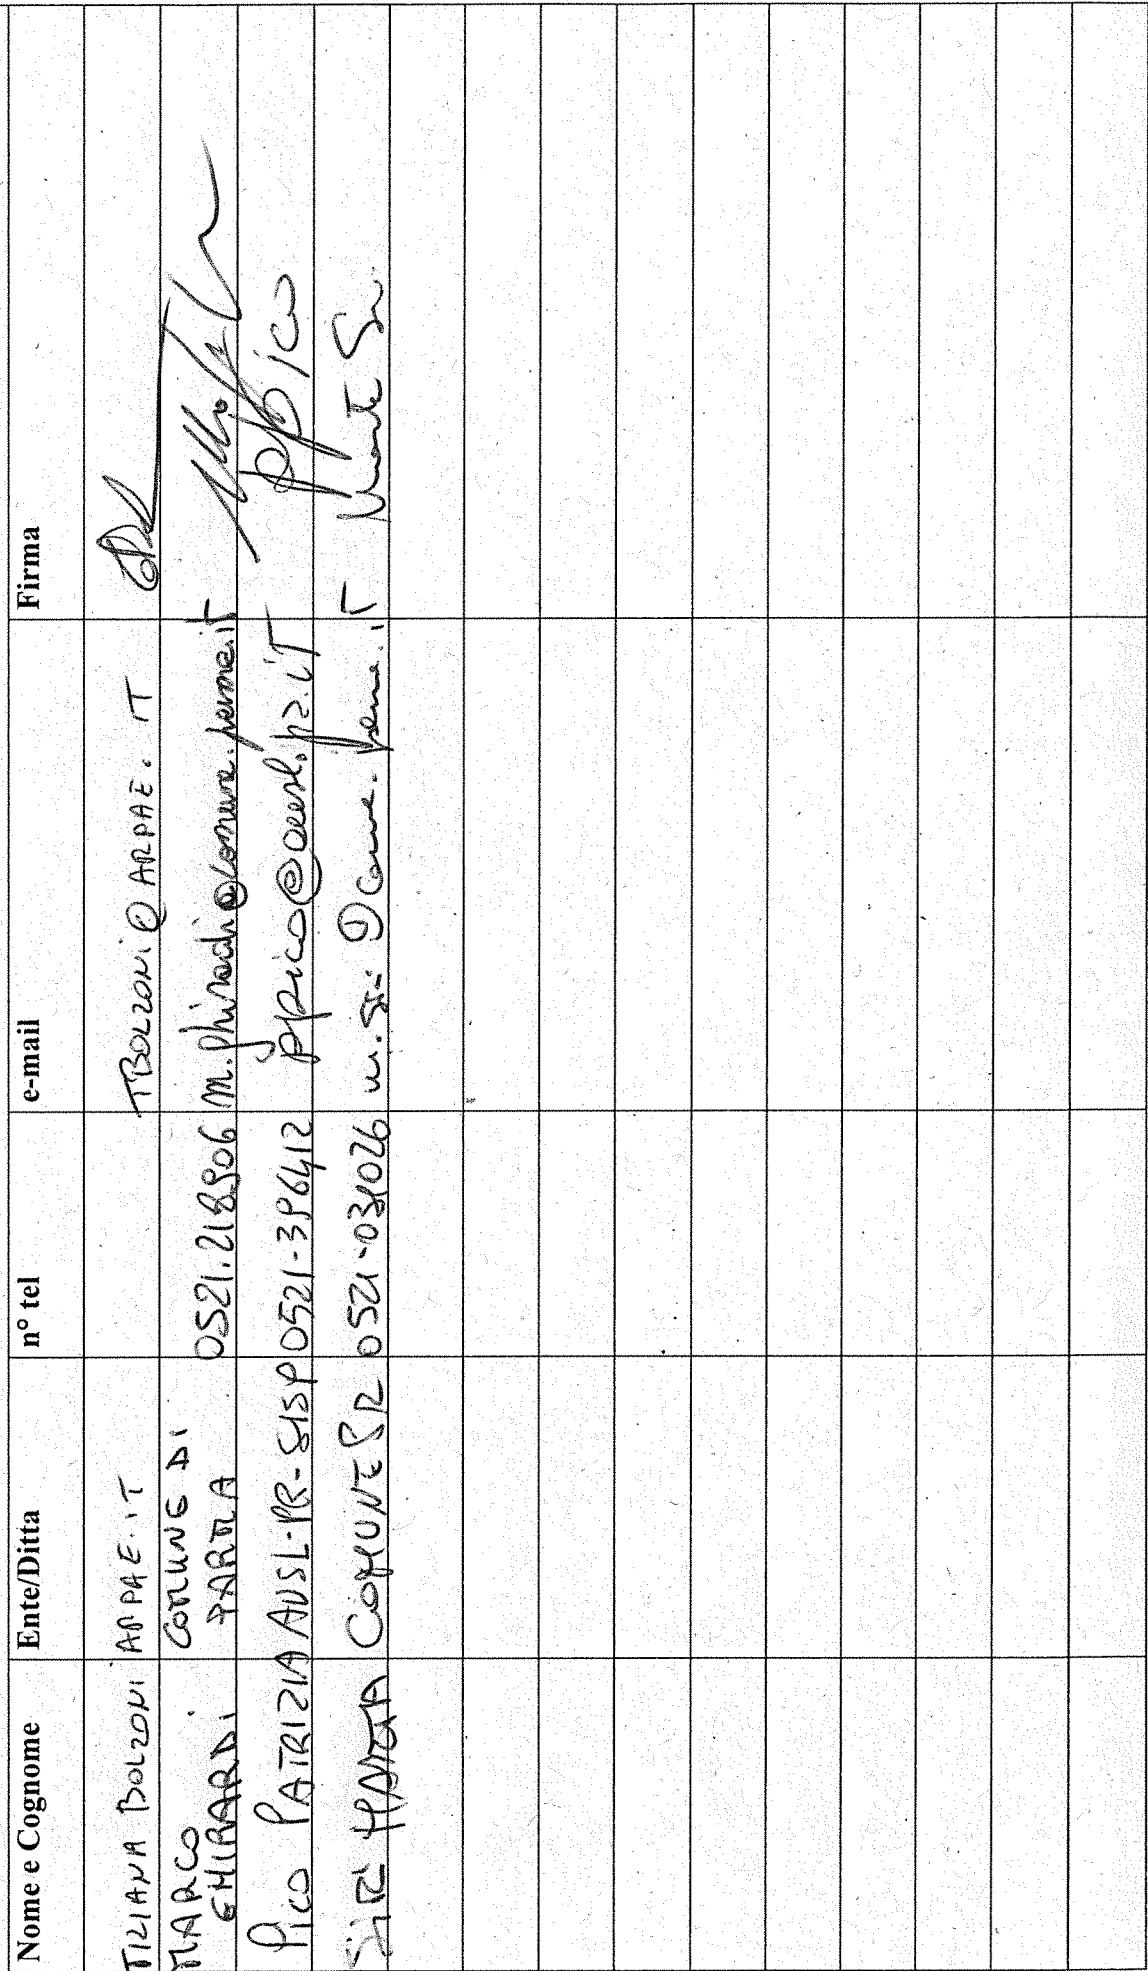 Nome e Cognome Ente/Ditta n° tel e-mail Firma
TIZIANA BOLZONI ARPAE.IT TBOLZONI@ARPAE.IT
MARCO COMUNE DI
GHIRARDI PARMA 0521.218906 m.ghirardi@comune.parma.it
PICO PATRIZIA AUSL-PR-SISP 0521-396412 ppico@ausl.pr.it ppico
SIRI MARTA COMUNE PR 0521-031026 m.siri@comune.parma.it